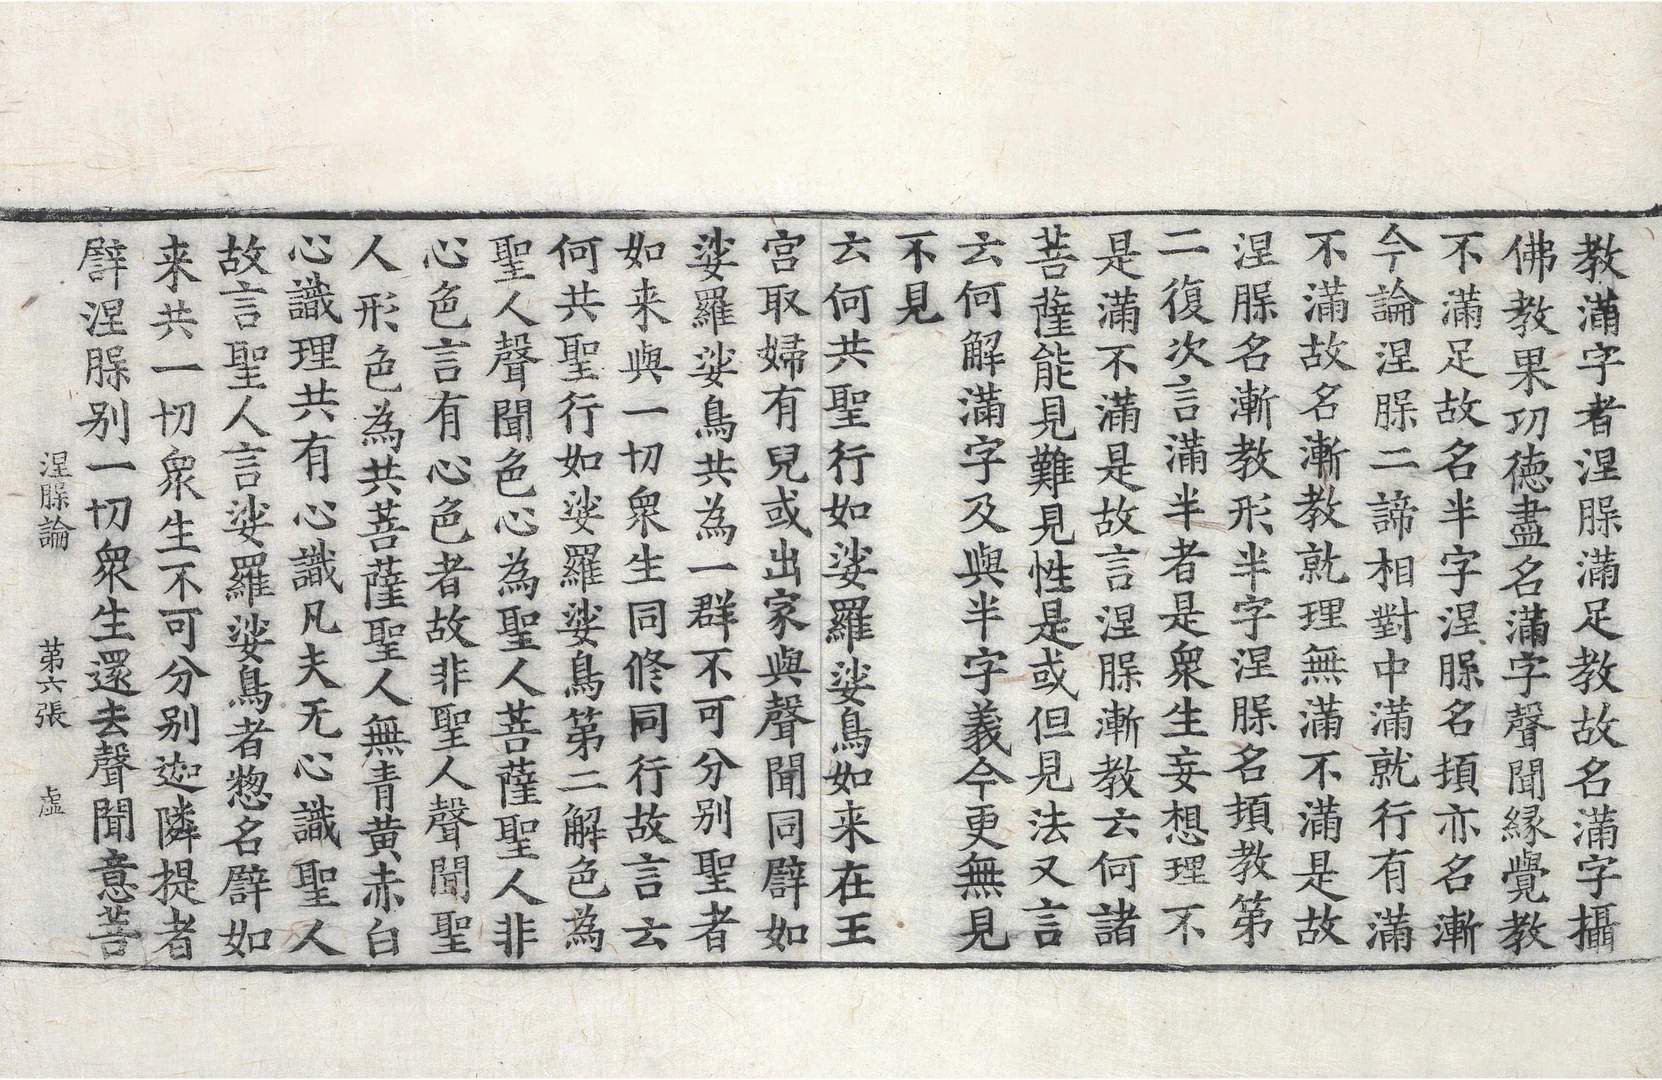 教滿字者涅槃滿足教故名滿字攝
佛教果功德盡名滿字聲聞緣覺教
不滿足故名半字涅槃名頓亦名漸
今論涅槃二諦相對中滿就行有滿
不滿故名漸教就理無滿不滿是故
涅槃名漸教形半字涅槃名頓教第
二復次言滿半者是衆生妄想理不
是滿不滿是故言涅槃漸教云何諸
菩薩能見難見性是或但見法又言
云何解滿字及與半字義今更無見
不見
云何共聖行如娑羅娑鳥如来在王
宮取婦有兒或出家與聲聞同譬如
娑羅娑鳥共為一群不可分別聖者
如来與一切衆生同修同行故言云
何共聖行如娑羅娑鳥第二解色為
聖人聲聞色心為聖人菩薩聖人非
心色言有心色者故非聖人聲聞聖
人形色為共菩薩聖人無青黄赤白
心識理共有心識凡夫无心識聖人
故言聖人言娑羅娑鳥者惣名譬如
来共一切衆生不可分别迦隣提者
譬涅槃别一切衆生還去聲聞意菩
涅槃論　第六張　虛